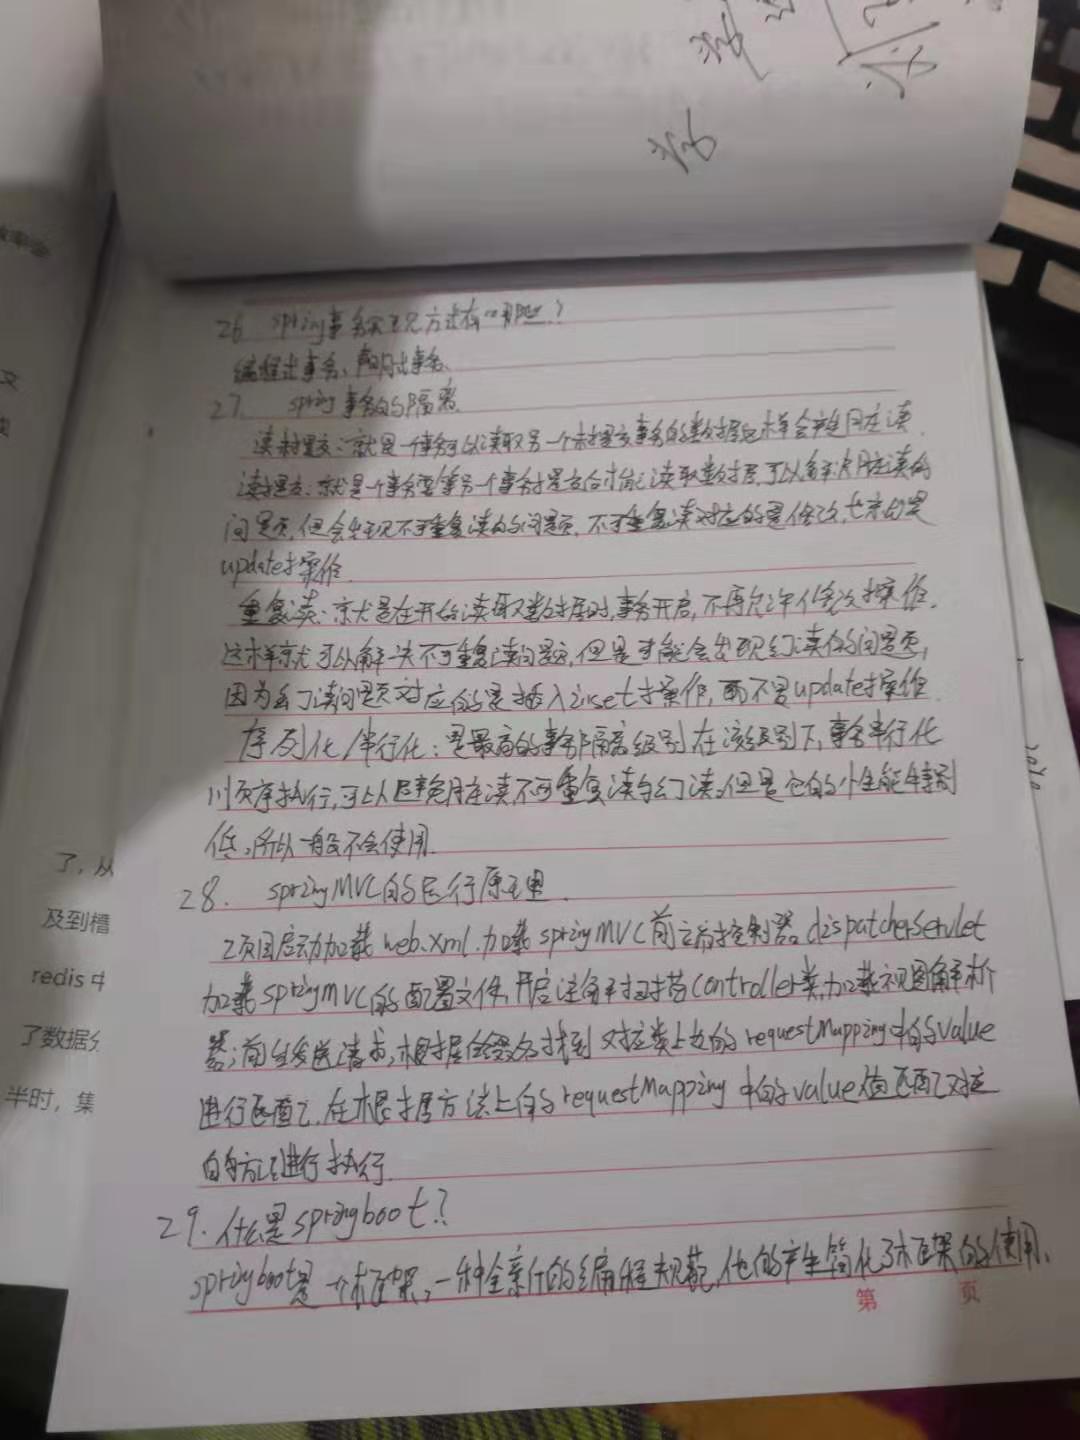 26. spring事务实现方式有哪些?
编程式事务、声明式事务.
27. spring事务的隔离.
读未提交:就是一个事务可以读取另一个未提交事务的数据这样会产生脏读.
读提交:就是一个事务要等另一个事务提交后才能读取数据,可以解决脏读的
问题,但会出现不可重复读的问题,不可重复读对应的是修改,也就是
update操作.
重复读:就是在开始读取数据时,事务开启,不再允许修改操作.
这样就可以解决不可重复读问题,但是可能会出现幻读的问题,
因为幻读问题对应的是插入inset操作,而不是update操作.
序列化/串行化:是最高的事务隔离级别在该级别下,事务串行化
顺序执行,可以避免脏读不可重复读与幻读。但是它的性能特别
低,所以一般不会使用.
28. springMVC的运行原理.
项目启动加载web.xml.加载springMVC前端控制器。dispatcherServlet
加载springmvc的配置文件,开启注解扫描Controller类,加载视图解析
器;前台发送请求,根据 找到对应类上边的requestMapping中的value
进行匹配,在根据方法上的requestMapping中的value值匹配对应
的方法进行执行.
29.什么是springboot?
springboot是一个框架,一种全新的编程规范,他的产生简化了框架的使用.
第 页
文
了,从
及到槽
redis中
了数据分
半时,集